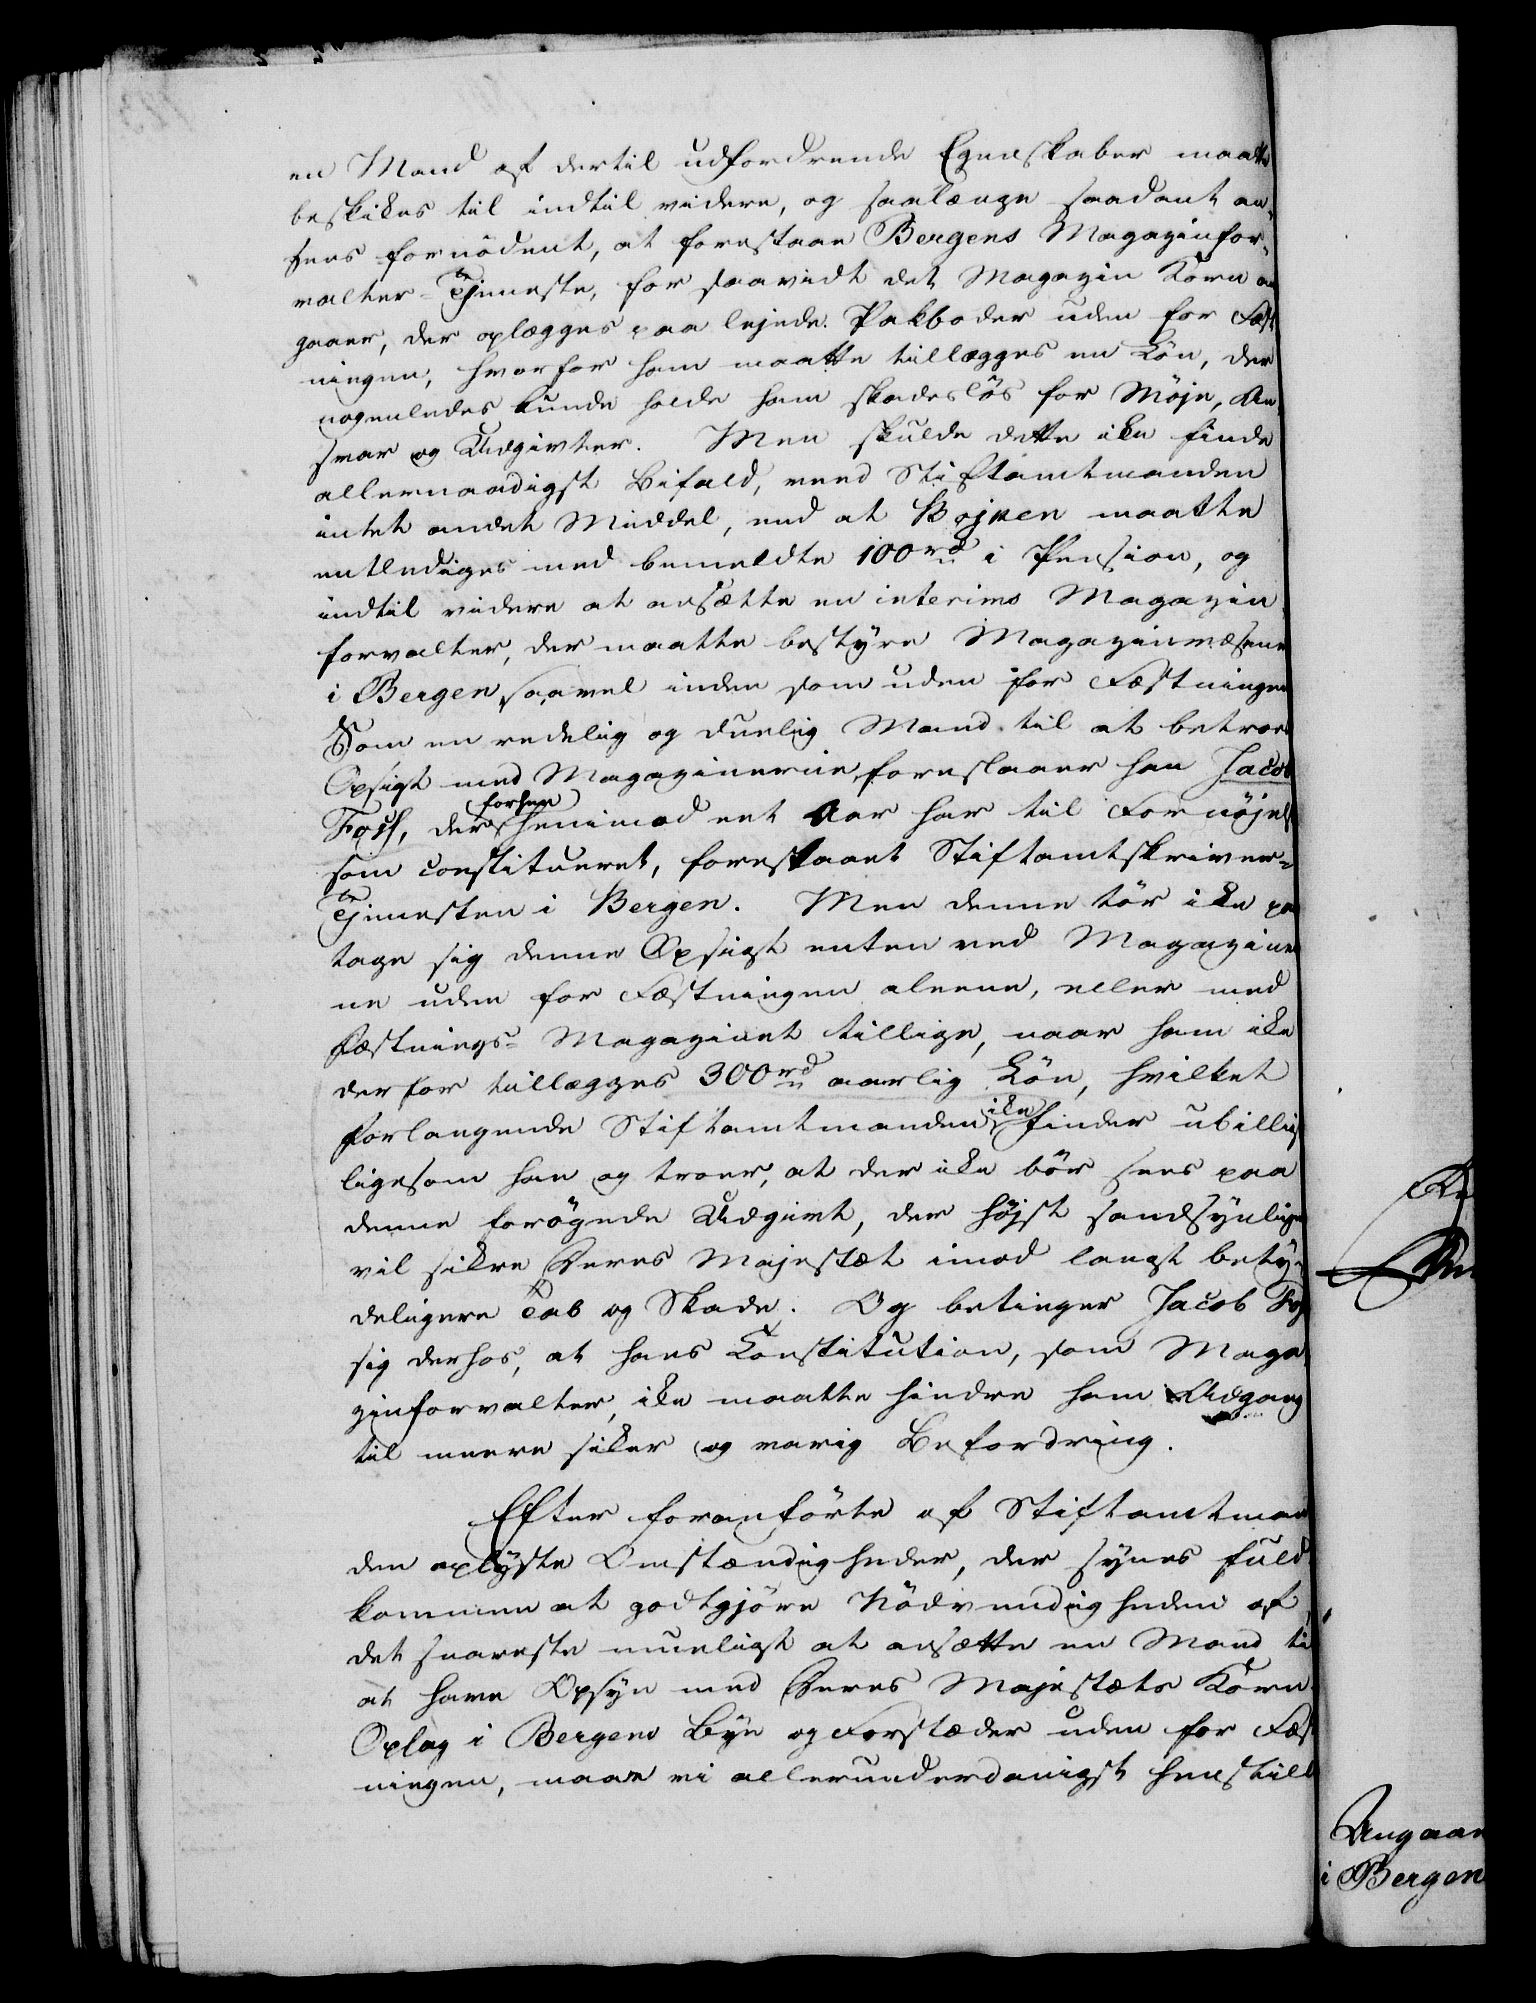 en Mand af dertil udfordrende Egenskaber maatte
beskikes til indtil videre, og saalænge saadant an¬
sees fornödent, at forestaae Bergens Magazinfor¬
valter-Tjeneste, for saavidt det Magazin Korn an
gaaer, der oplægges paa lejede Pakboder uden for Fæst
ningen, hvorfor ham maatte tillægges en Lön, der
nogenledes kunde holde ham skadeslös for Möje, An¬
svar og Udgivter. Men skulde dette ike finde
allernaadigst Bifald, veed Stiftamtmanden
intet andet Middel, end at Bojsen maatte
entlediges med bemeldte 100 rd i Pension, og
indtil videre at ansætte en interims Magazin
forvalter, der maatte bestÿre Magazinvæsene
i Bergen, saavel inden som uden for Fæstningen
Som en redelig og duelig Mand til at betroe
Opsigt med Magazinerne, foreslaaer han Jacob
Fosß, der forhen henimod eet Aar har til Fornöjel
som constitueret, forestaaet Stiftamtskriver¬
Tjenesten i Bergen. Men denne tör ike paa
tage sig denne Opsigt enten ved Magaziner
ne uden for Fæstningen aleene, eller med
Fæstnings-Magazinet tillige, naar ham ike
derfor tillægges 300 rd aarlig Lön, hvilket
forlangende Stiftamtmanden ike finder ubillig
ligesom han og troer, at der ike bör sees paa
denne forögede Udgivt, der höjst sandsÿnlige
vil sikre Deres Majestæt imod langt betÿ¬
deligere Tab og Skade. Og betinger Jacob Fos
sig derhos, at hans Constitution, som Maga¬
zinforvalter, ike maatte hindre ham Adgang
til meere siker og varig Befordring.
Efter foranförte af Stiftamtman
den oplÿste Omstændigheder, der sÿnes fuld
kommen at godtgjöre Nödvendigheden af,
det snareste mueligt at ansætte en Mand til
at have Opsÿn med Deres Majestæts Korn
Oplag i Bergens Bÿe og Forstæder uden for Fæst
ningen, maae vi allerunderdanigst henstille
Angaae
i Bergen